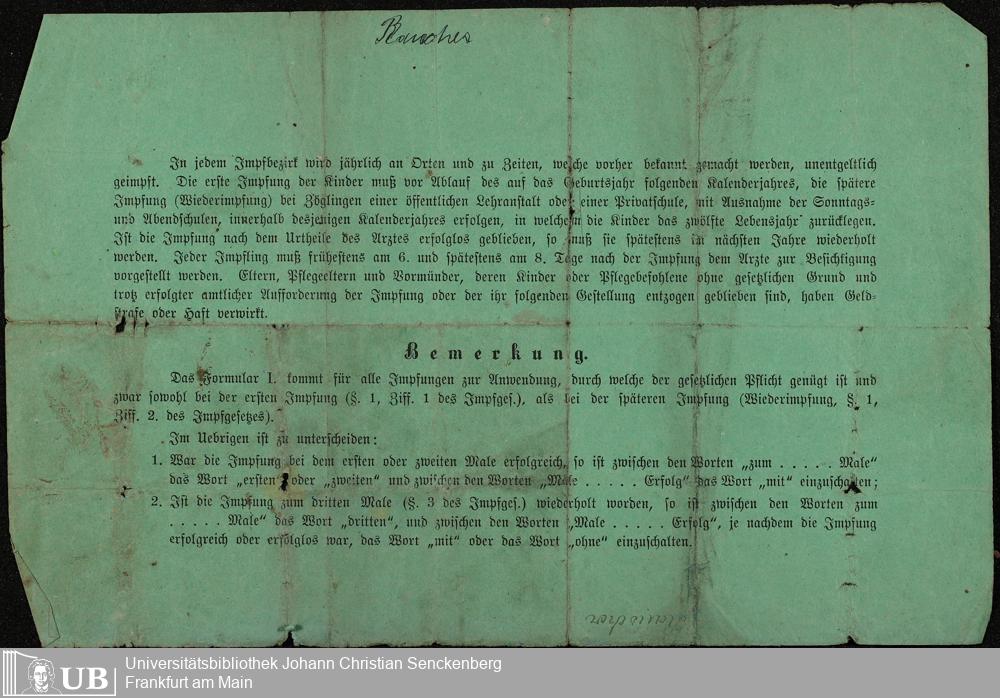 In jedem Impfbezirk wird jährlich an Orten und zu Zeiten, welche vorher bekannt gemacht werden, unentgeltlich
geimpft. Die erste Impfung der Kinder muß vor Ablauf des auf das Geburtsjahr folgenden Kalenderjahres, die spätere
Impfung (Wiederimpfung) bei Zöglingen einer öffentlichen Lehranstalt oder einer Privatschule, mit Ausnahme der Sonntags-
und Abendschulen, innerhalb desjenigen Kalenderjahres erfolgen, in welchem die Kinder das zwölfte Lebensjahr zurücklegen.
Ist die Impfung nach dem Urtheile des Arztes erfolglos geblieben, so muß sie spätestens im nächsten Jahre wiederholt
werden. Jeder Impfling muß frühestens am 6. und spätestens am 8. Tage nach der Impfung dem Arzte zur Besichtigung
vorgestellt werden. Eltern, Pflegeeltern und Vormünder, deren Kinder oder Pflegebefohlene ohne gesetzlichen Grund und
trotz erfolgter amtlicher Aufforderung der Impfung oder der ihr folgenden Gestellung entzogen geblieben sind, haben Geld-
strafe oder Haft verwirkt.
Bemerkung.
Das Formular I. kommt für alle Impfungen zur Anwendung, durch welche der gesetzlichen Pflicht genügt ist und
zwar sowohl bei der ersten Impfung (§. 1, Ziff. 1 des Impfges.), als bei der späteren Impfung (Wiederimpfung, §. 1,
Ziff. 2. des Impfgesetzes).
Im Uebrigen ist zu unterscheiden:
1. War die Impfung bei dem ersten oder zweiten Male erfolgreich, so ist zwischen den Worten „zum . . . . . Male“
das Wort „ersten“ oder „zweiten“ und zwischen den Worten „Male . . . . . Erfolg“ das Wort „mit“ einzuschalten;
2. Ist die Impfung zum dritten Male (§. 3 des Impfges.) wiederholt worden, so ist zwischen den Worten zum
. . . . . Male“ das Wort „dritten“, und zwischen den Worten „Male . . . . . Erfolg“, je nachdem die Impfung
erfolgreich oder erfolglos war, das Wort „mit“ oder das Wort „ohne“ einzuschalten.
UB
Universitätsbibliothek Johann Christian Senckenberg
Frankfurt am Main